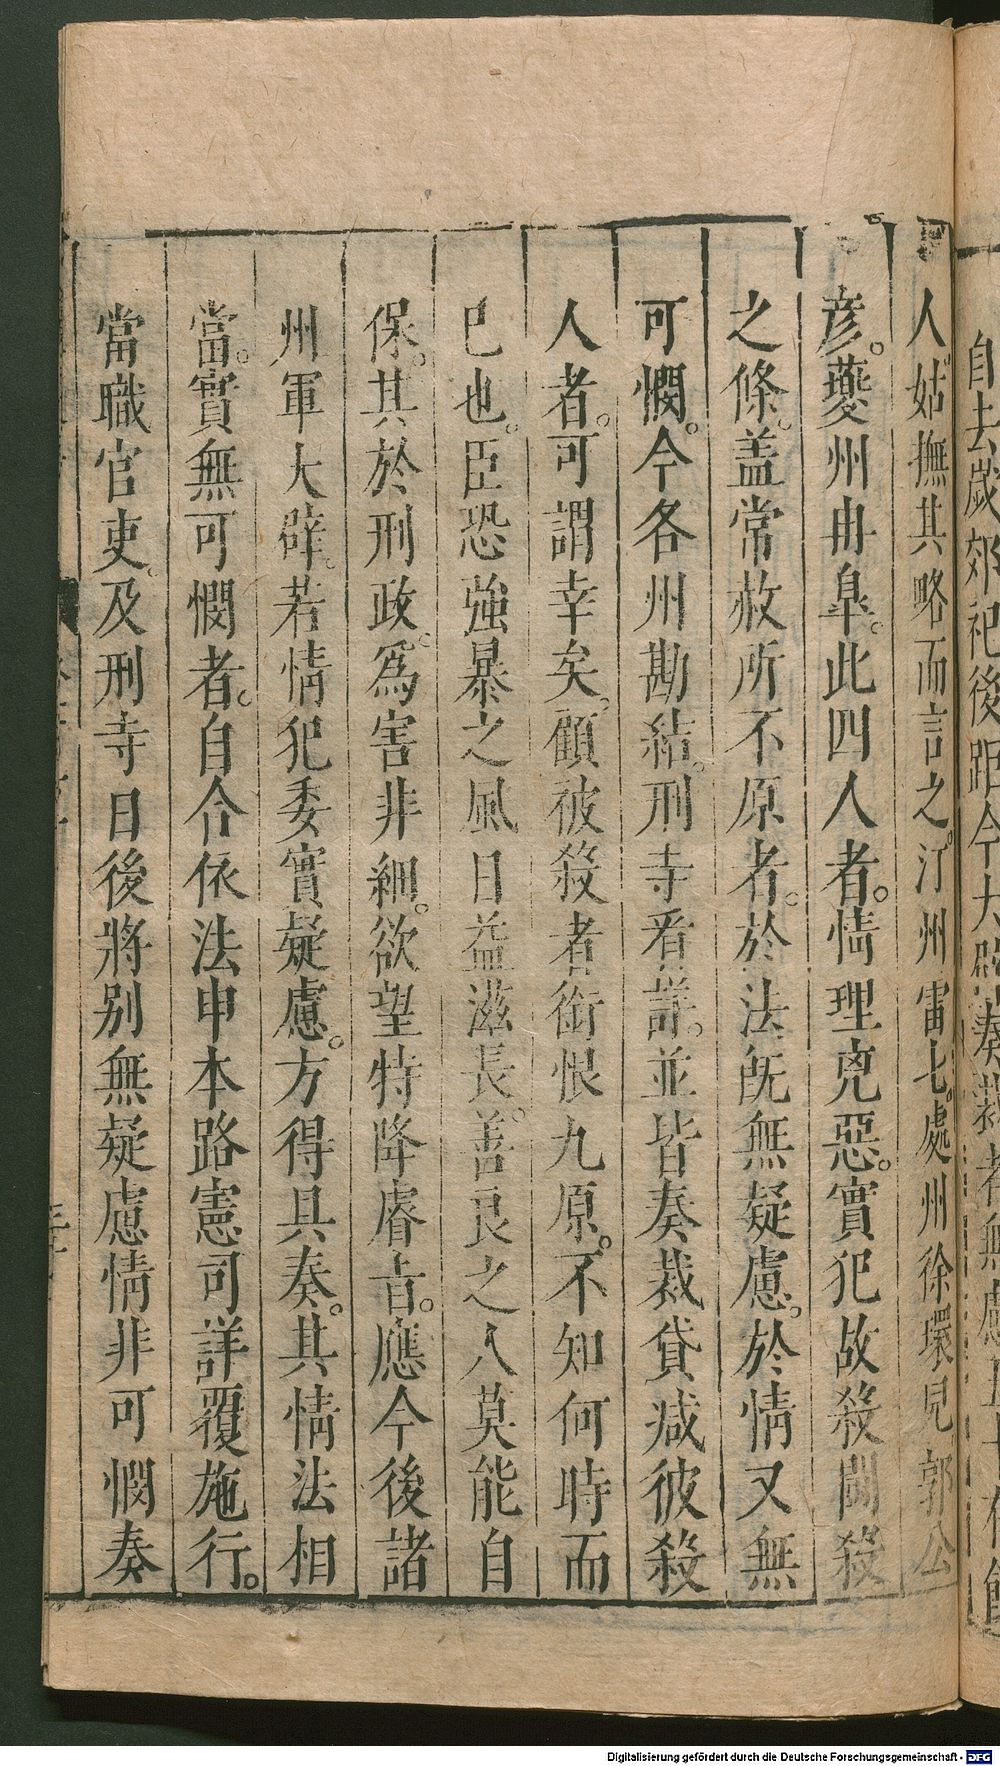 自去歲郊祀後距今大辟奏裁者無慮五十
人姑撫其略而言之汀州雷七處州徐環兒郭公
彥夔州冉皐此四人者情理兇惡實犯故殺鬪殺
之條盖常赦所不原者於法旣無疑慮於情又無
可憫今各州勘結刑寺看詳並皆奏裁貸减彼殺
人者可謂幸矣顧被殺者銜恨九原不知何時而
已也臣恐強暴之風日益滋長善良之人莫能自
保其於刑政爲害非細欲望特降睿旨應今後諸
州軍大辟若情犯委實疑慮方得具奏其情法相
當實無可憫者自合依法申本路憲司詳覆施行
當職官吏及刑寺日後將別無疑慮情非可憫奏
Digitalisierung gefördert durch die Deutsche Forschungsgemeinschaft - DFG